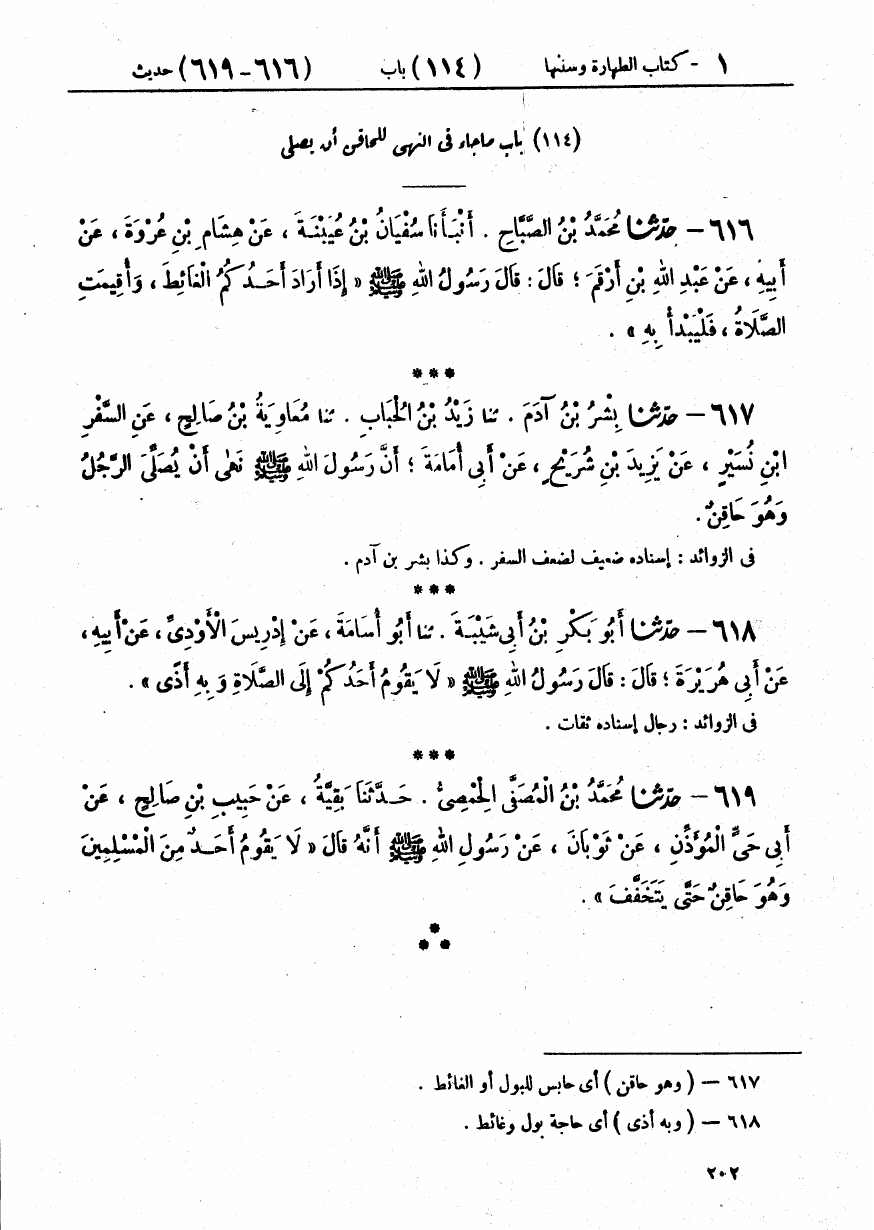 ١ - كتاب الطهارة وسننها (١١٤) باب (٦١٦-٦١٩) حديث
(١١٤) باب ماجاء فى النهى للحاقن أن يصلى
٦١٦ – حدّثنا مُحَمَّدُ بْنُ الصَّبَّاحِ . أَنْبَأَنَا سُفْيَانُ بْنُ عُيَيْنَةَ ، عَنْ هِشَامِ بْنِ عُرْوَةَ ، عَنْ
أَبِيهِ ، عَنْ عَبْدِ اللهِ بْنِ أَرْقَمَ ؛ قَالَ : قَالَ رَسُولُ اللهِ ﷺ « إِذَا أَرَادَ أَحَدُكُمُ الْغَائِطَ ، وَأُقِيمَتِ
الصَّلَاةُ ، فَلْيَبْدَأْ بِهِ » .
***
٦١٧ – حدّثنا بِشْرُ بْنُ آدَمَ . ثنا زَيْدُ بْنُ الْحُبَابِ . ثنا مُعَاوِيَةُ بْنُ صَالِحٍ ، عَنِ السَّفْرِ
ابْنِ نُسَيْرٍ ، عَنْ يَزِيدَ بْنِ شُرَيْحٍ ، عَنْ أَبِى أُمَامَةَ ؛ أَنَّ رَسُولَ اللهِ ﷺ نَهَى أَنْ يُصَلِّىَ الرَّجُلُ
وَهُوَ حَاقِنٌ.
فى الزوائد : إسناده ضعيف لضعف السفر . وكذا بشر بن آدم .
***
٦١٨ – حدّثنا أَبُو بَكْرِ بْنُ أَبِى شَيْبَةَ . ثنا أَبُو أُسَامَةَ ، عَنْ إِدْرِيسَ الْأَوْدِىِّ ، عَنْ أَبِيهِ ،
عَنْ أَبِى هُرَيْرَةَ ؛ قَالَ : قَالَ رَسُولُ اللهِ ﷺ « لَا يَقُومُ أَحَدُكُمْ إِلَى الصَّلَاةِ وَبِهِ أَذًى » .
فى الزوائد : رجال إسناده ثقات .
***
٦١٩ – حدّثنا مُحَمَّدُ بْنُ الْمُصَفَّى الْحِمْصِىُّ . حَدَّثَنَا بَقِيَّةُ ، عَنْ حَبِيبِ بْنِ صَالِحٍ ، عَنْ
أَبِى حَىٍّ الْمُؤَذِّنِ ، عَنْ ثَوْبَانَ ، عَنْ رَسُولِ اللهِ ﷺ أَنَّهُ قَالَ « لَا يَقُومُ أَحَدٌ مِنَ الْمُسْلِمِينَ
وَهُوَ حَاقِنٌ حَتَّى يَتَخَفَّفَ » .
***
٦١٧ – ( وهو حاقن ) أى حابس للبول أو الغائط .
٦١٨ – ( وبه أذى ) أى حاجة بول وغائط .
٢٠٢